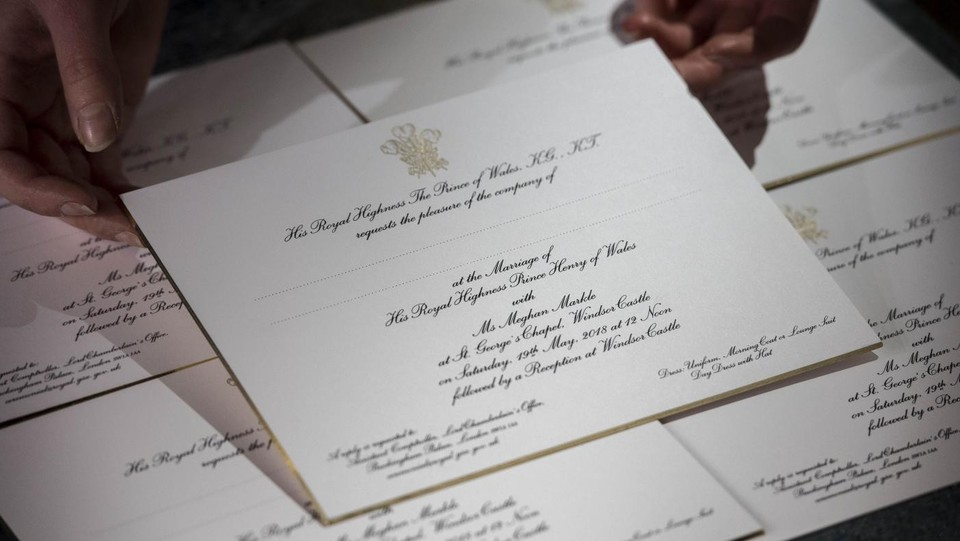 His Royal Highness The Prince of Wales, K.G., K.T.
requests the pleasure of the company of
at the Marriage of
His Royal Highness Prince Henry of Wales
with
Ms Meghan Markle
at St. George's Chapel, Windsor Castle
on Saturday, 19th May, 2018 at 12 Noon
followed by a Reception at Windsor Castle
Dress: Uniform, Morning Coat or Lounge Suit
Day Dress with Hat
A reply is requested to:
Assistant Comptroller, Lord Chamberlain's Office,
Buckingham Palace, London SW1A 1AA
His Royal Highness The
requests the pleasure
company of
His Royal Highness
at the
Ms Meg
at St. George's Cha
on Saturday, 19th
followed by a Recep
reply is requested to:
Comptroller, Lord Chamberlain's Office,
Buckingham Palace, London SW1A 1AA
Prince of Wales, K.G., K
of the company of
the Marriage of
Highness Prince He
with
Ms Meghan Ma
at St. George's Chapel,
on Saturday, 19th M
followed by a Rece
A reply is requested to:
Assistant Comptroller, Lord Chamberlain's Office,
Buckingham Palace, London SW1A 1AA
His Royal Highness
requests the p
His Royal H
Meghan Markle
Windsor Castle
or Lounge Suit